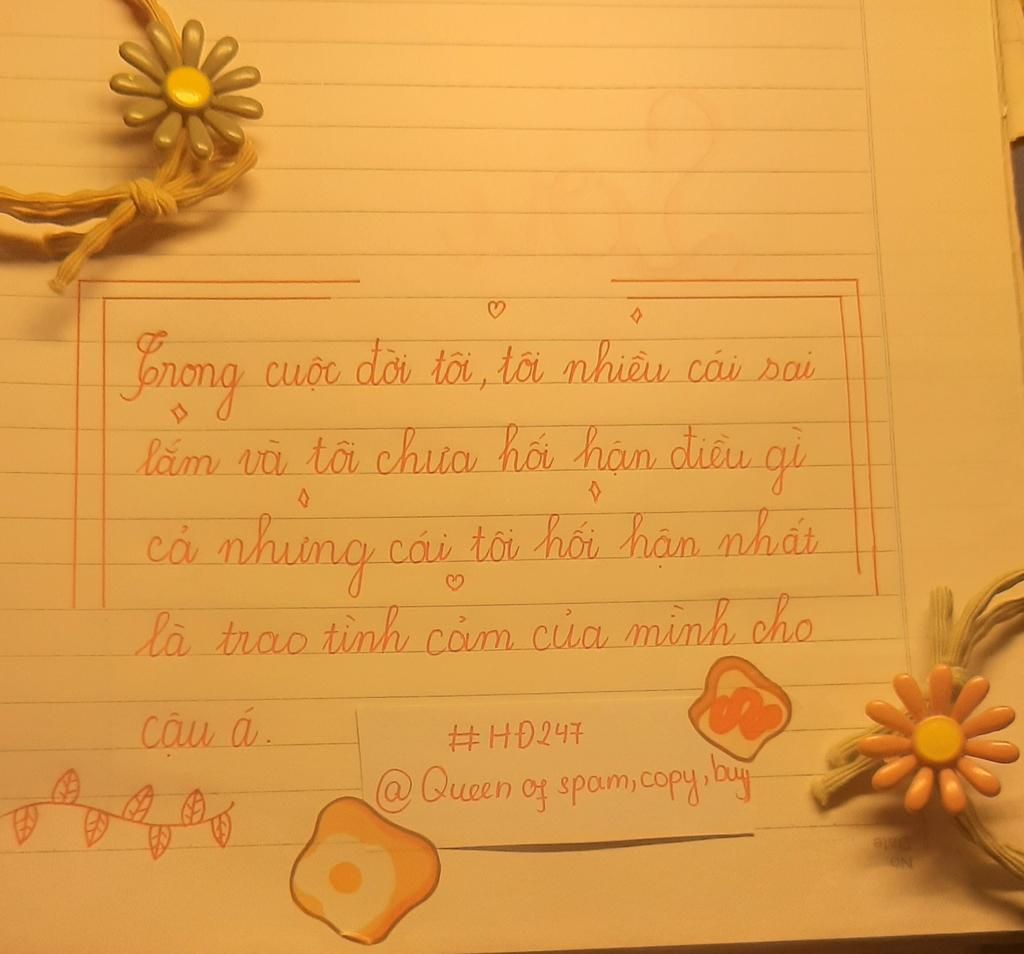 Trong cuộc đời tôi, tôi nhiều cái sai
lắm và tôi chưa hối hận điều gì
cả nhưng cái tôi hối hận nhất
là trao tình cảm của mình cho
cậu á.
#HĐ247
@Queen of spam, copy, buy